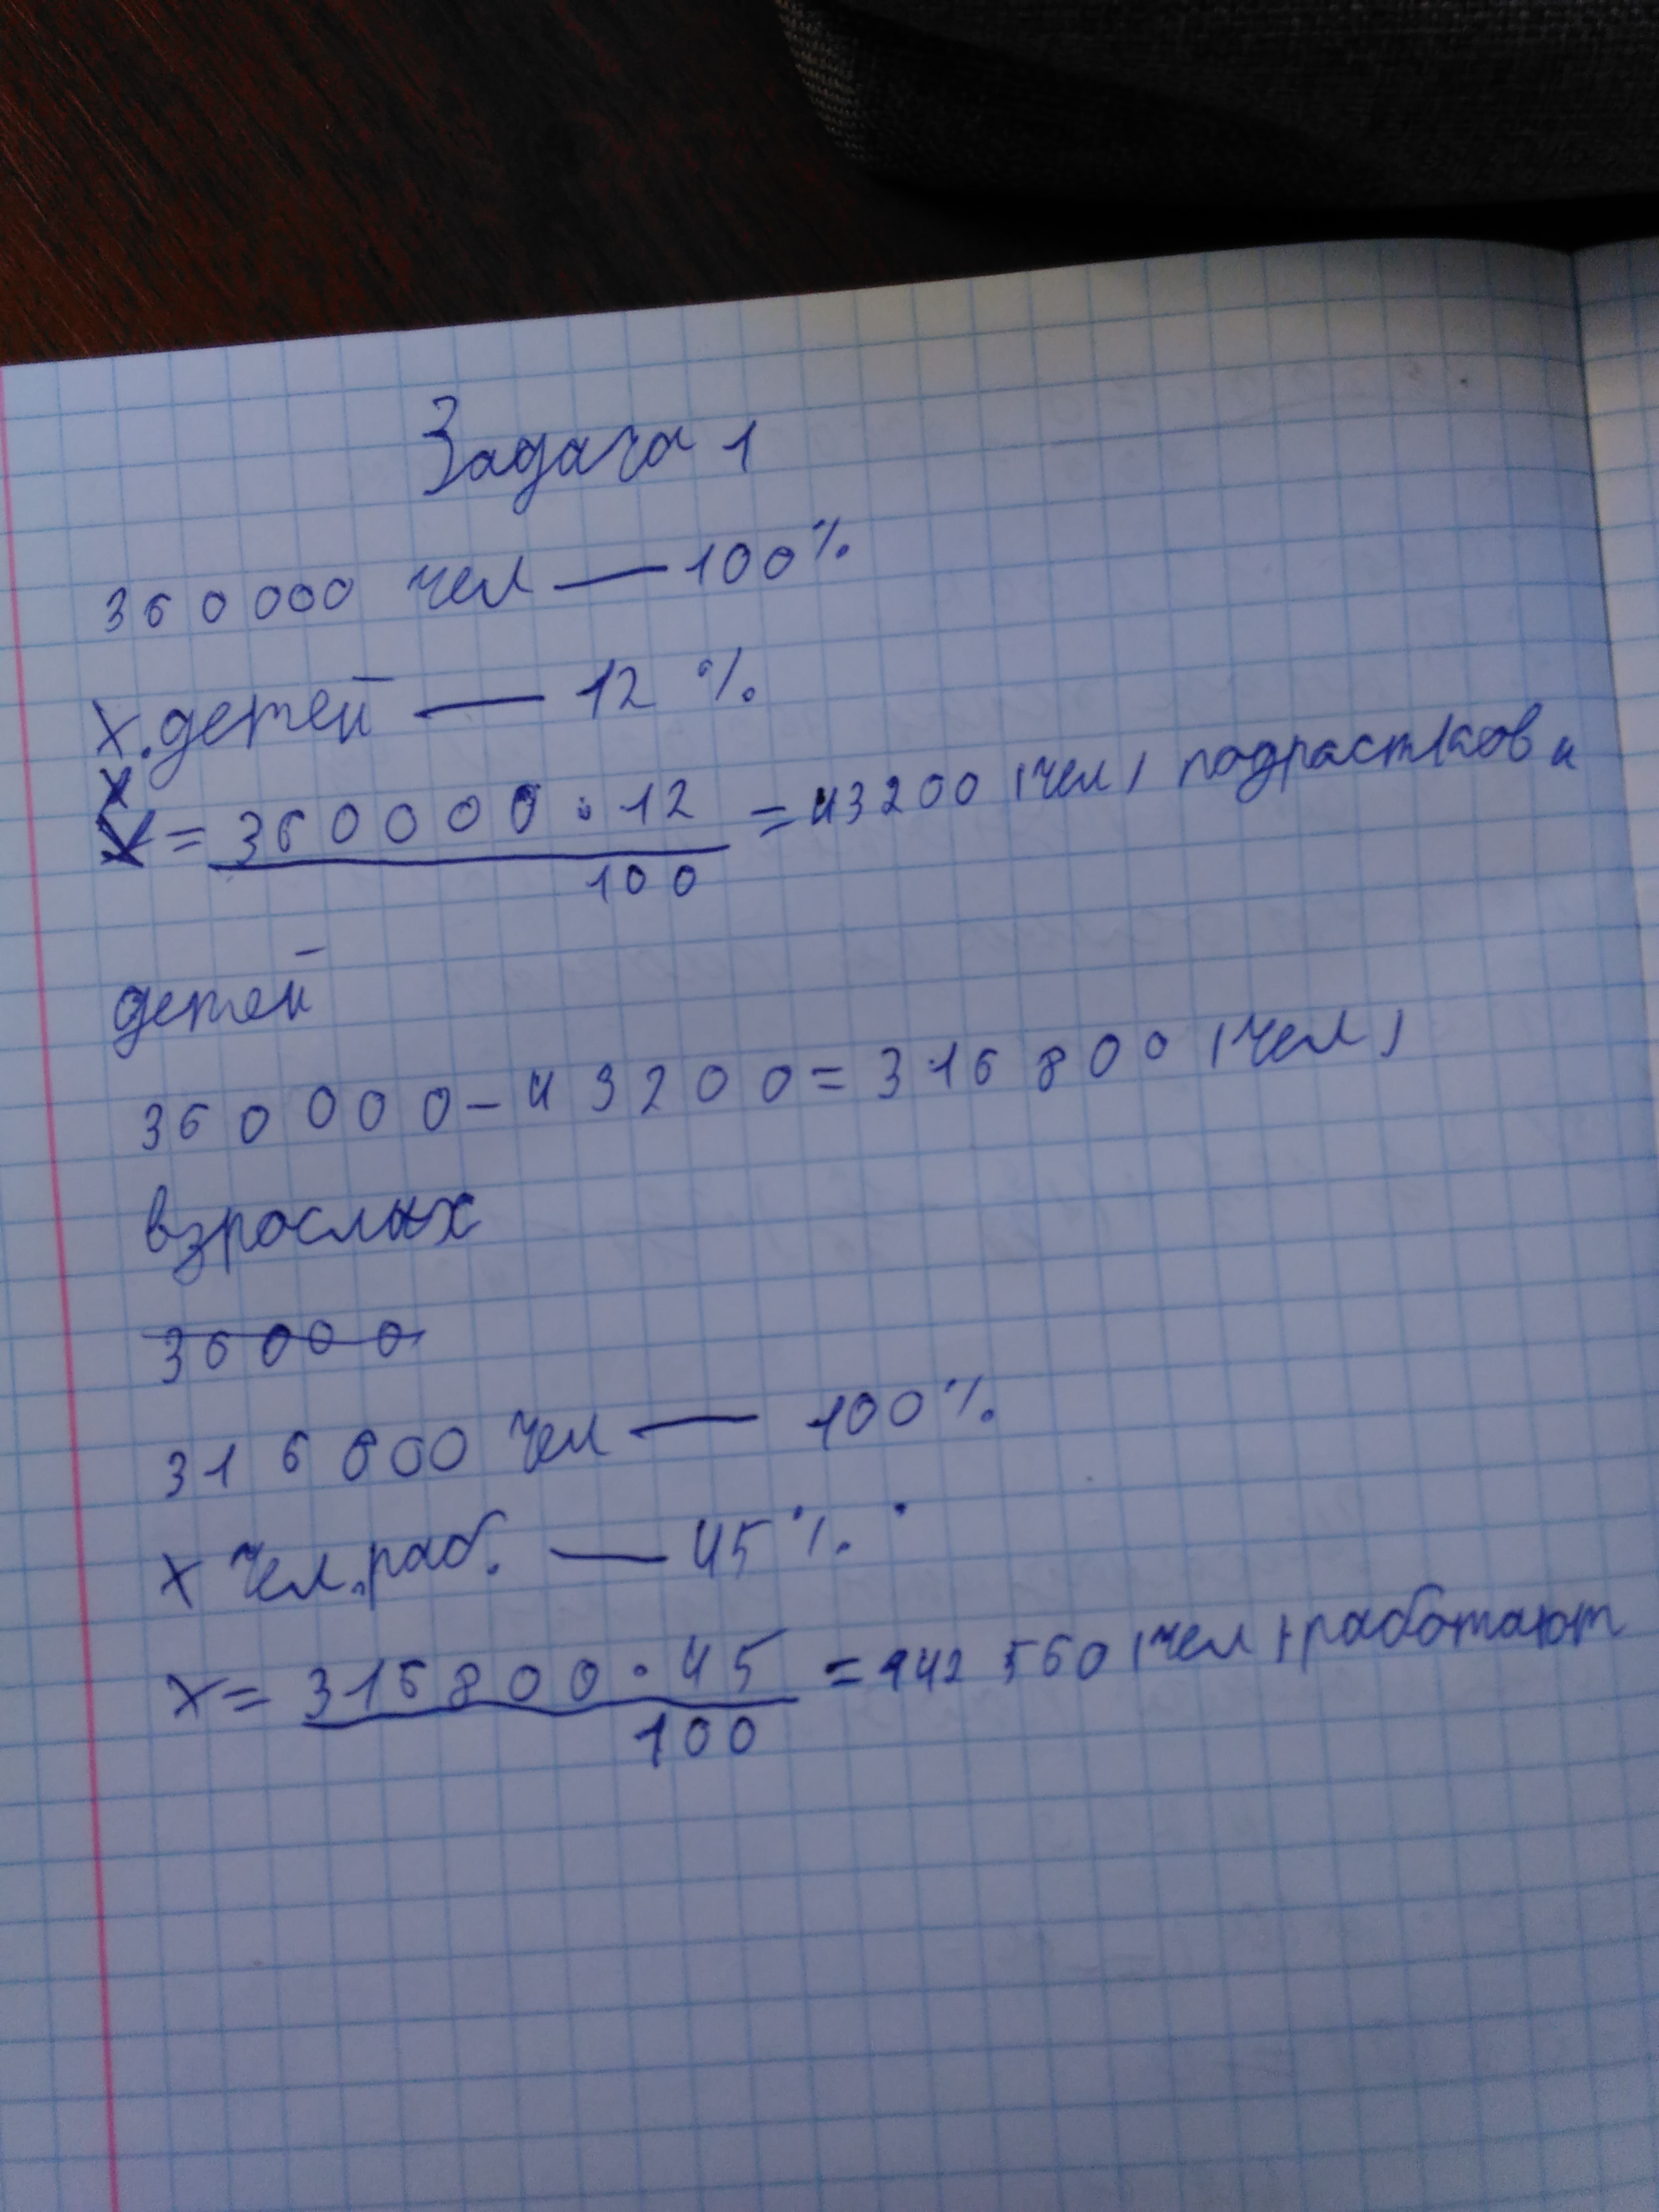 Задача 1
360000 чел — 100%
х.детей — 12 %
х
х = 360000 · 12 = 43200 (чел) подрастков и
100
детей
360 000 - 43200 = 316 800 (чел)
взрослых
36000
316 800 чел — 100%
х чел.раб. — 45%
х = 316800 · 45 = 142 560 (чел) работают
100